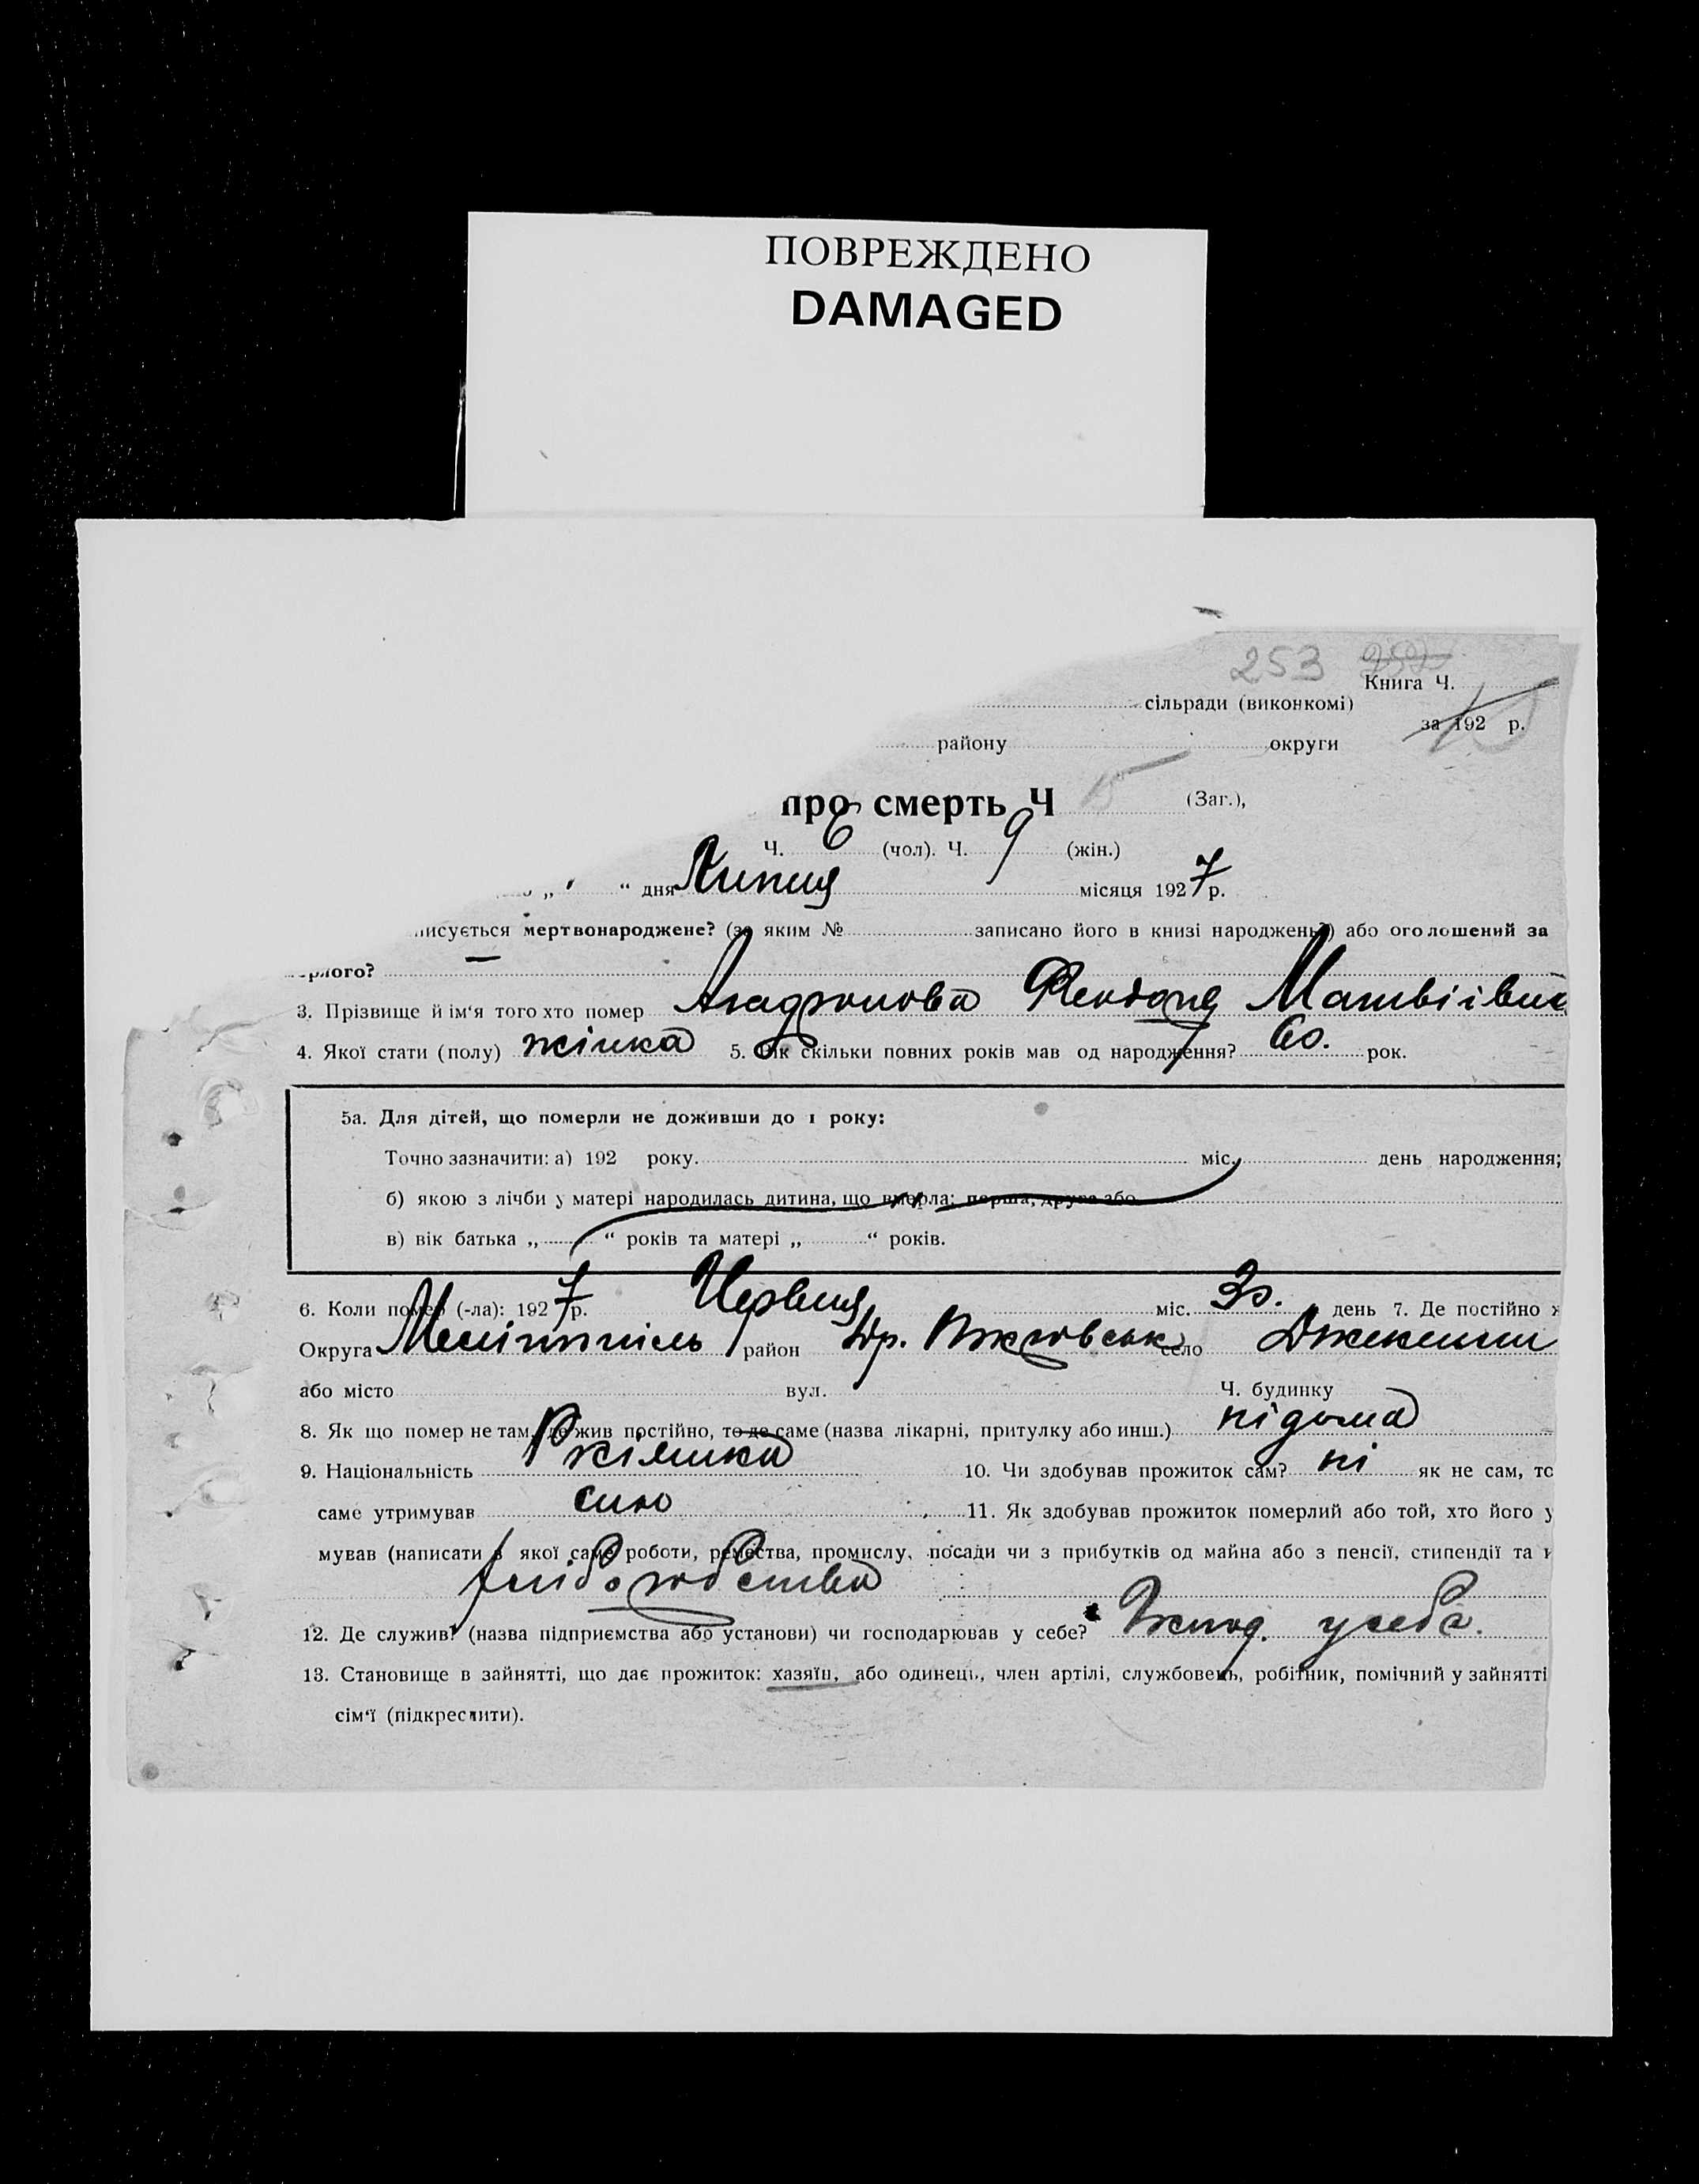 ПОВРЕЖДЕНО
DAMAGED
253
Книга Ч.
сільради (виконкомі)
за 192 р.
району округи
про смерть Ч 15 (Заг.),
Ч. 6 (чол). Ч. 9 (жін.)
„ “ дня Липня місяця 1927 р.
исується мертвонароджене? (за яким № записано його в книзі народжень?) або оголошений за
рлого? —
3. Прізвище й ім‘я того хто помер Матвіївна
4. Якої стати (полу) жінка 5. Вік скільки повних років мав од народження? 60. рок.
5а. Для дітей, що померли не доживши до 1 року:
Точно зазначити: а) 192 року. міс. день народження;
б) якою з лічби у матері народилась дитина, що вмерла: перша, друга або
в) вік батька „ “ років та матері „ “ років.
6. Коли помер (-ла): 1927 р. Червня міс. 30. день 7. Де постійно ж
Округа Мелітопіль район село
або місто вул. Ч. будинку
8. Як що помер не там, де жив постійно, то де саме (назва лікарні, притулку або инш.)
9. Національність 10. Чи здобував прожиток сам? ні як не сам, то
саме утримував син 11. Як здобував прожиток померлий або той, хто його у
мував (написати з якої саме роботи, ремества, промислу, посади чи з прибутків од майна або з пенсії, стипендії та и
хліборобства
12. Де служив? (назва підприємства або установи) чи господарював у себе? у себе.
13. Становище в зайнятті, що дає прожиток: хазяїн, або одинець, член артілі, службовець, робітник, помічний у зайнятті
сім‘ї (підкреслити).